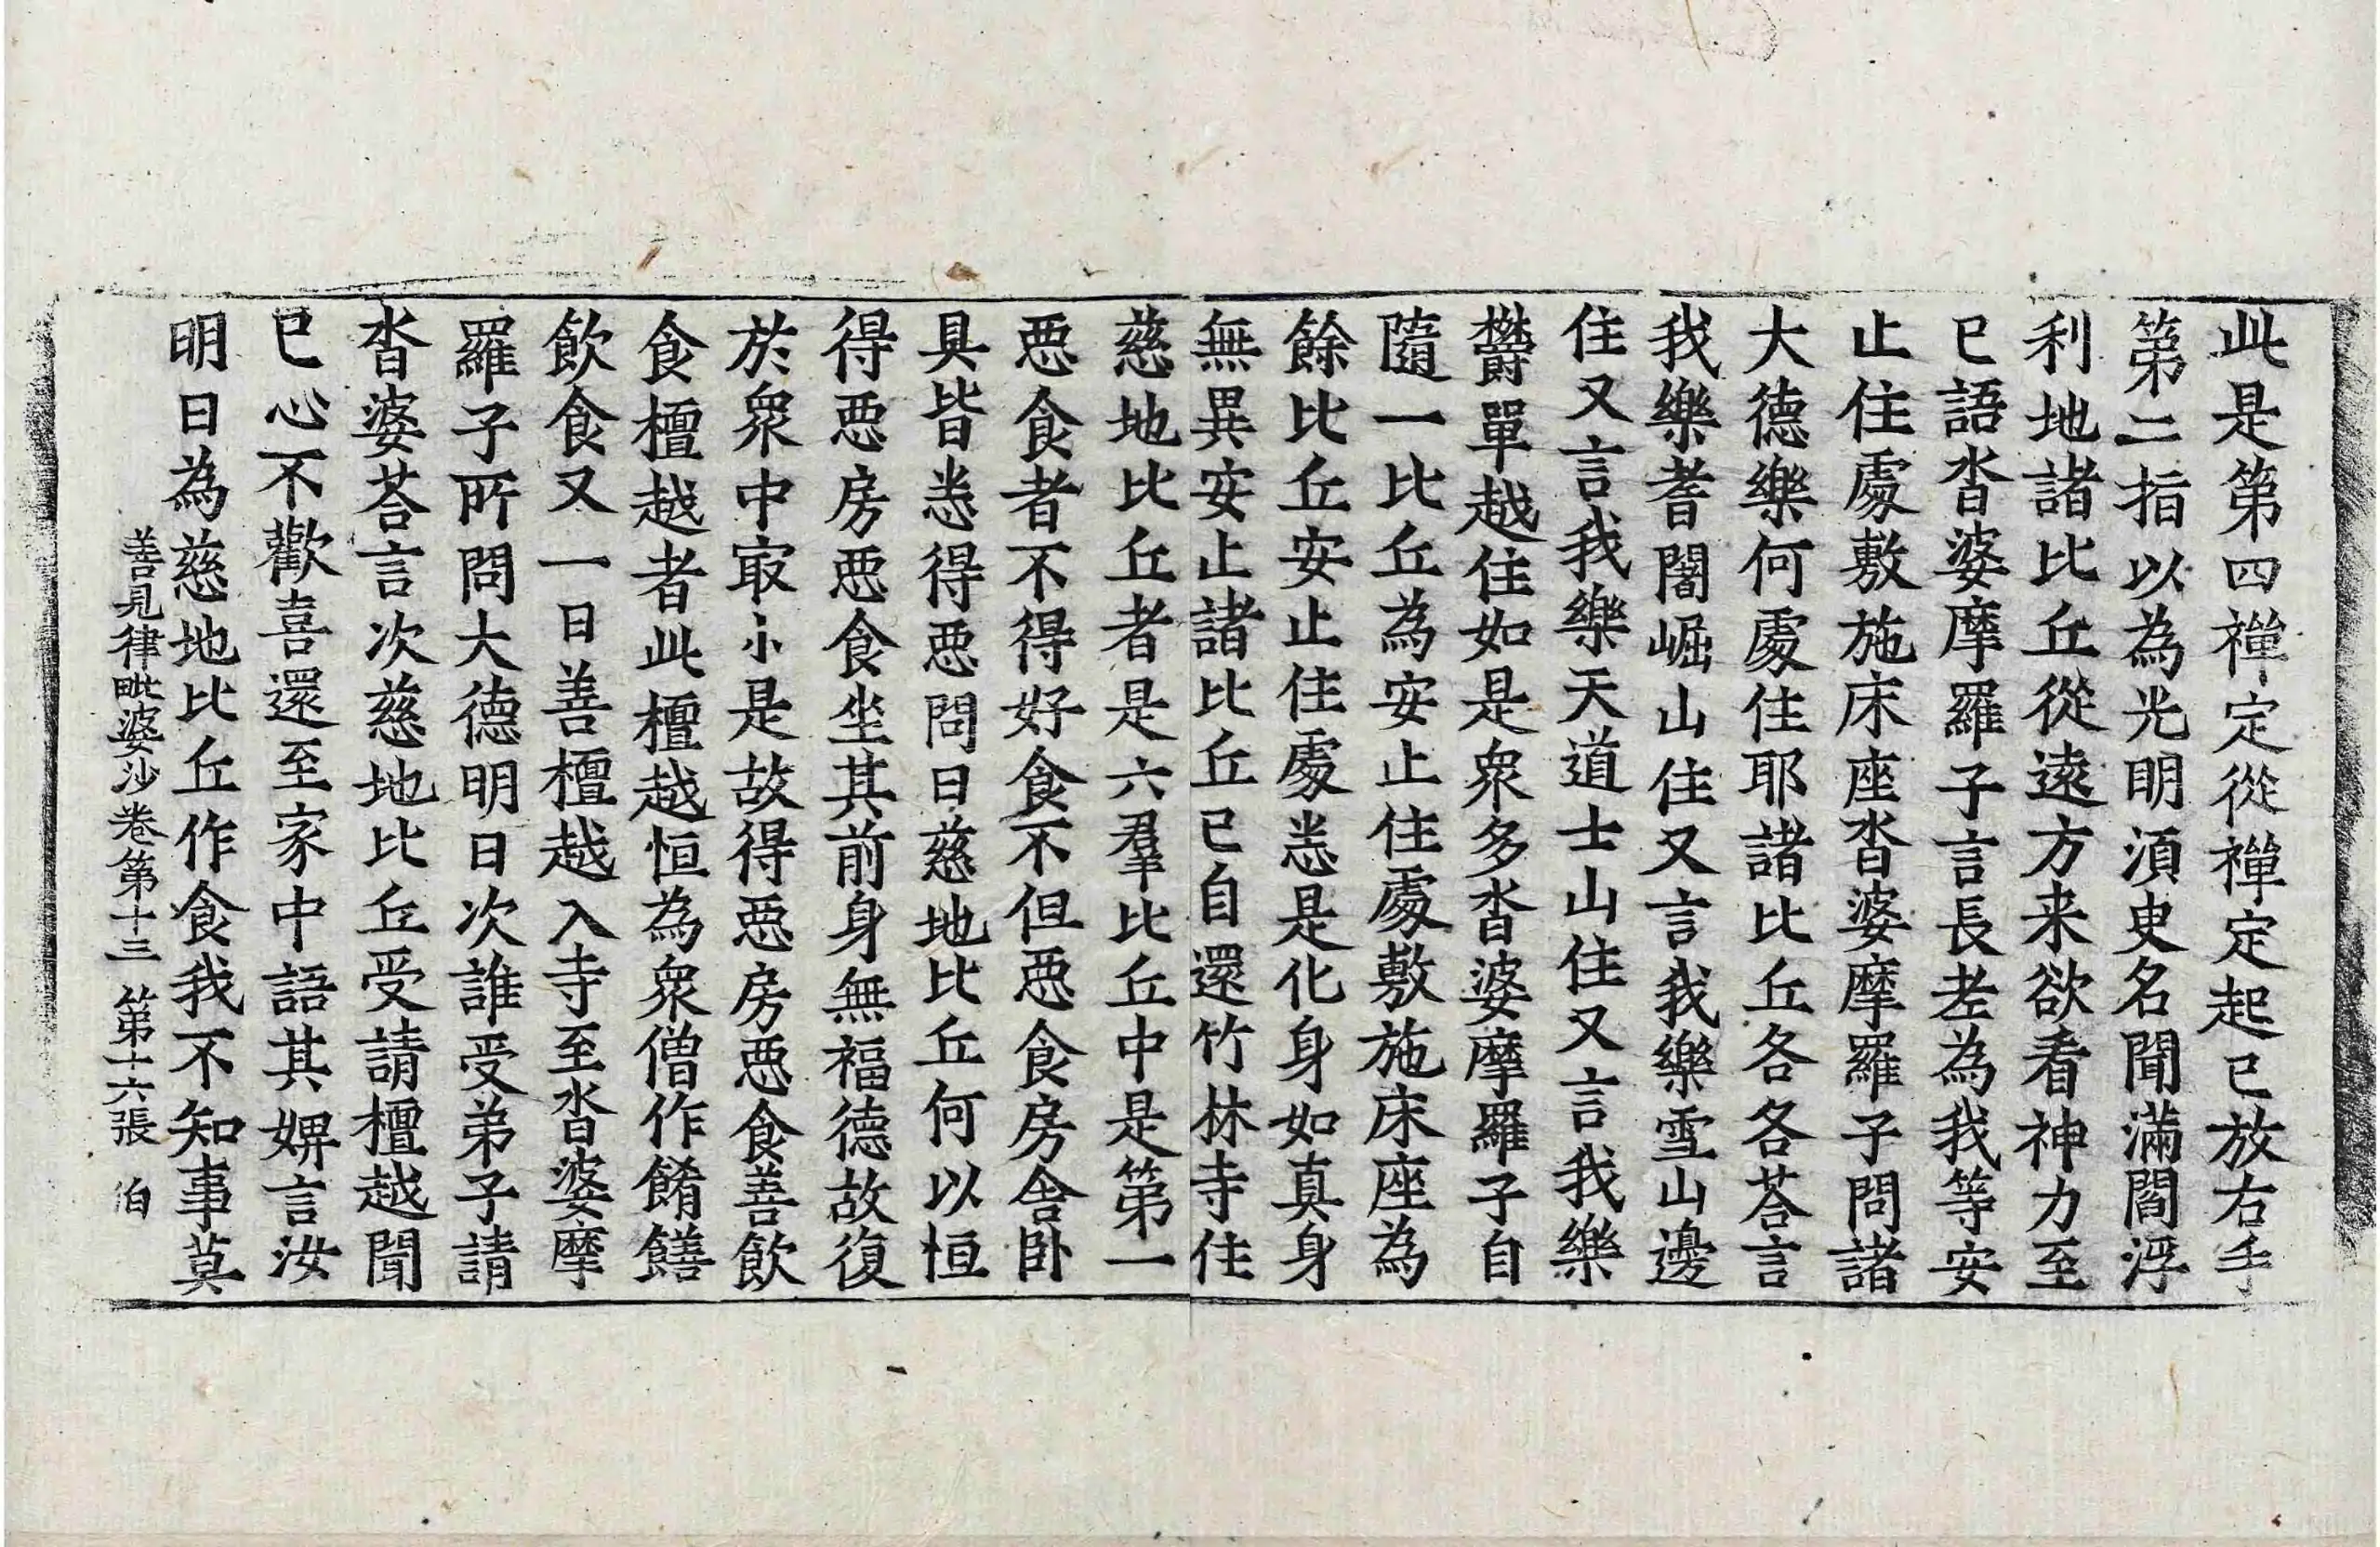 此是第四禪定從禪定起已放右手
第二指以為光明須臾名聞滿閻浮
利地諸比丘從遠方来欲看神力至
已語沓婆摩羅子言長老為我等安
止住處敷施床座沓婆摩羅子問諸
大德樂何處住耶諸比丘各各荅言
我樂耆闍崛山住又言我樂雪山邊
住又言我樂天道士山住又言我樂
欝單越住如是衆多沓婆摩羅子自
隨一比丘為安止住處敷施床座為
餘比丘安止住處悉是化身如真身
無異安止諸比丘已自還竹林寺住
慈地比丘者是六羣比丘中是第一
惡食者不得好食不但惡食房舍卧
具皆悉得惡問曰慈地比丘何以恒
得惡房惡食坐其前身無福德故復
於衆中㝡小是故得惡房惡食善飲
食檀越者此檀越恒為衆僧作餚饍
飲食又一日善檀越入寺至沓婆摩
羅子所問大德明日次誰受弟子請
沓婆荅言次慈地比丘受請檀越聞
已心不歡喜還至家中語其婢言汝
明日為慈地比丘作食我不知事莫
善見律毗婆沙卷第十三 第十六張 伯